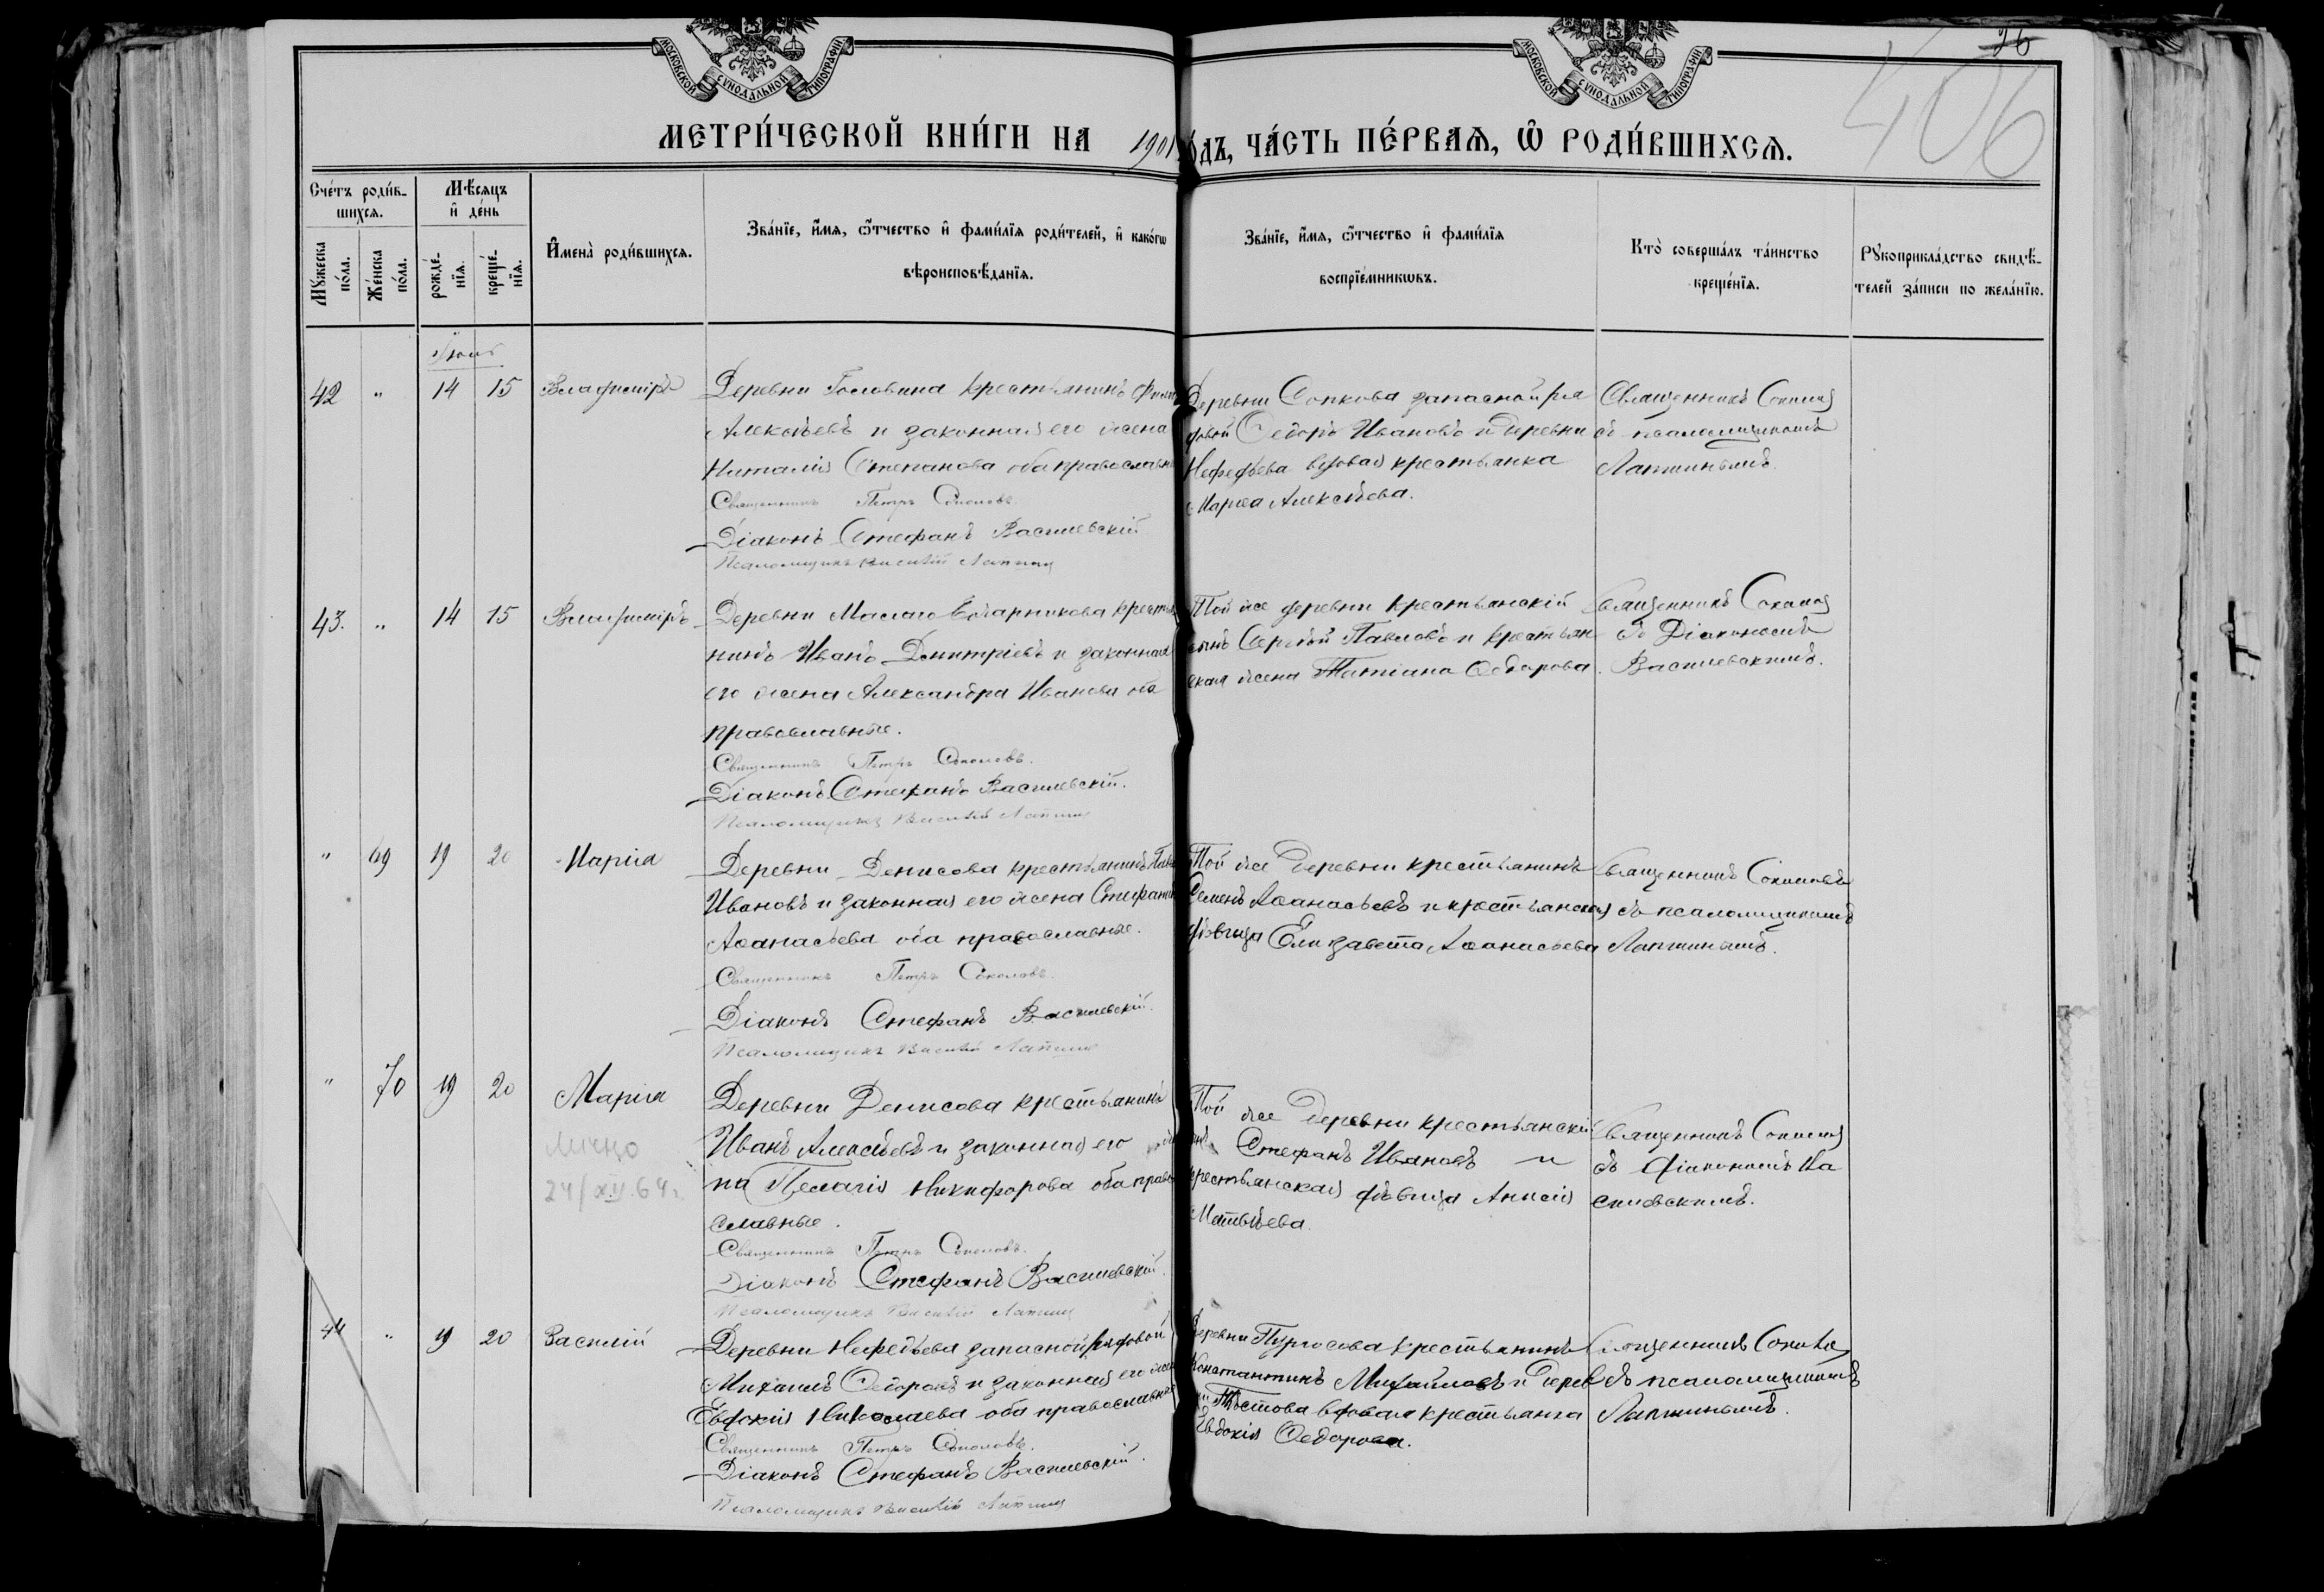 МОСКОВСКОЙ СѴНОДАЛЬНОЙ ТИПОГРАФІИ
МОСКОВСКОЙ СѴНОДАЛЬНОЙ ТИПОГРАФІИ
26
406
МЕТРИ́ЧЕСКОЙ КНИ́ГИ НА 1901
О́ДЪ, ЧА́СТЬ ПЕ́РВАѦ, Ѡ҆ РОДИ́ВШИХСѦ.
Сче́тъ роди́в-
шихсѧ.
Мꙋ́жеска по́ла.
Же́нска по́ла.
Мѣ́сѧцъ
и҆ де́нь
рожде́-нїѧ.
креще́-нїѧ.
И҆мена̀ роди́вшихсѧ.
Зва́нїе, и҆́мѧ, ѻ҆́тчество и҆ фами́лїѧ роди́телей, и҆ како́гѡ
вѣроисповѣ́данїѧ.
Зва́нїе, и҆́мѧ, ѻ҆́тчество и҆ фами́лїѧ
воспрїе́мникѡвъ.
Кто̀ соверша́лъ та́инство
креще́нїѧ.
Рꙋкоприкла́дство свидѣ́-
телей за́писи по жела́нїю.
42 " 14 15 Владиміръ
Деревни Головина крестьянинъ
Алексѣевъ и законная его жена
Наталія Степанова оба православн
Священникъ Петръ Соколовъ.
Діаконъ Стефанъ Василевскій
Псаломщикъ Василій Лапшин
Деревни Сопкова запасной ря
довой Ѳедоръ Ивановъ и деревни
Нефедьева вдовая крестьянка
Марѳа Алексѣева.
Священникъ Соколов
съ псаломщикомъ
Лапшинымъ.
43. " 14 15 Владиміръ
Деревни Малаго крестья
нинъ Иванъ Димитріевъ и законная
его жена Александра Иванова оба
православные.
Священникъ Петръ Соколовъ.
Діаконъ Стефанъ Василевскій.
Псаломщикъ Василій Лапшин
Той же деревни крестьянскій
сынъ Сергѣй Павловъ и крестьян
ская жена Татіана Ѳедорова.
Священникъ Соколов
съ Діакономъ
Василевскимъ.
" 69 19 20 Марія
Деревни Денисова крестьянинъ
Ивановъ и законная его жена
Аѳанасьева оба православные.
Священникъ Петръ Соколовъ.
Діаконъ Стефанъ Василевскій.
Псаломщикъ Василій Лапшин
Той же деревни крестьянинъ
Семенъ Аѳанасьевъ и крестьянская
дѣвица Елизавета Аѳанасьева
Священникъ Соколовъ
съ псаломщикомъ
Лапшинымъ.
" 70 19 20 Марія
24/XII.64 г.
Деревни Денисова крестьянинъ
Иванъ Алексѣевъ и законная его же
на Пелагія Никифорова оба право
славные.
Священникъ Петръ Соколовъ.
Діаконъ Стефанъ Василевскій.
Псаломщикъ Василій Лапшин
Той же деревни крестьянскій
Стефанъ Ивановъ и
крестьянская дѣвица Анисія
Матвѣева.
Священникъ Соколов
съ діакономъ Ва
силевскимъ.
44 " 19 20 Василій
Деревни Нефедьева запасной рядовой
Михаилъ Ѳедоровъ и законная его жена
Евдокія Николаева оба православные
Священникъ Петръ Соколовъ.
Діаконъ Стефанъ Василевскій.
Псаломщикъ Василій Лапшин
Деревни крестьянинъ
Константинъ Михайловъ и дерев
ни вдовая крестьянка
Евдокія Ѳедорова.
Священникъ
съ псаломщикомъ
Лапшинымъ.